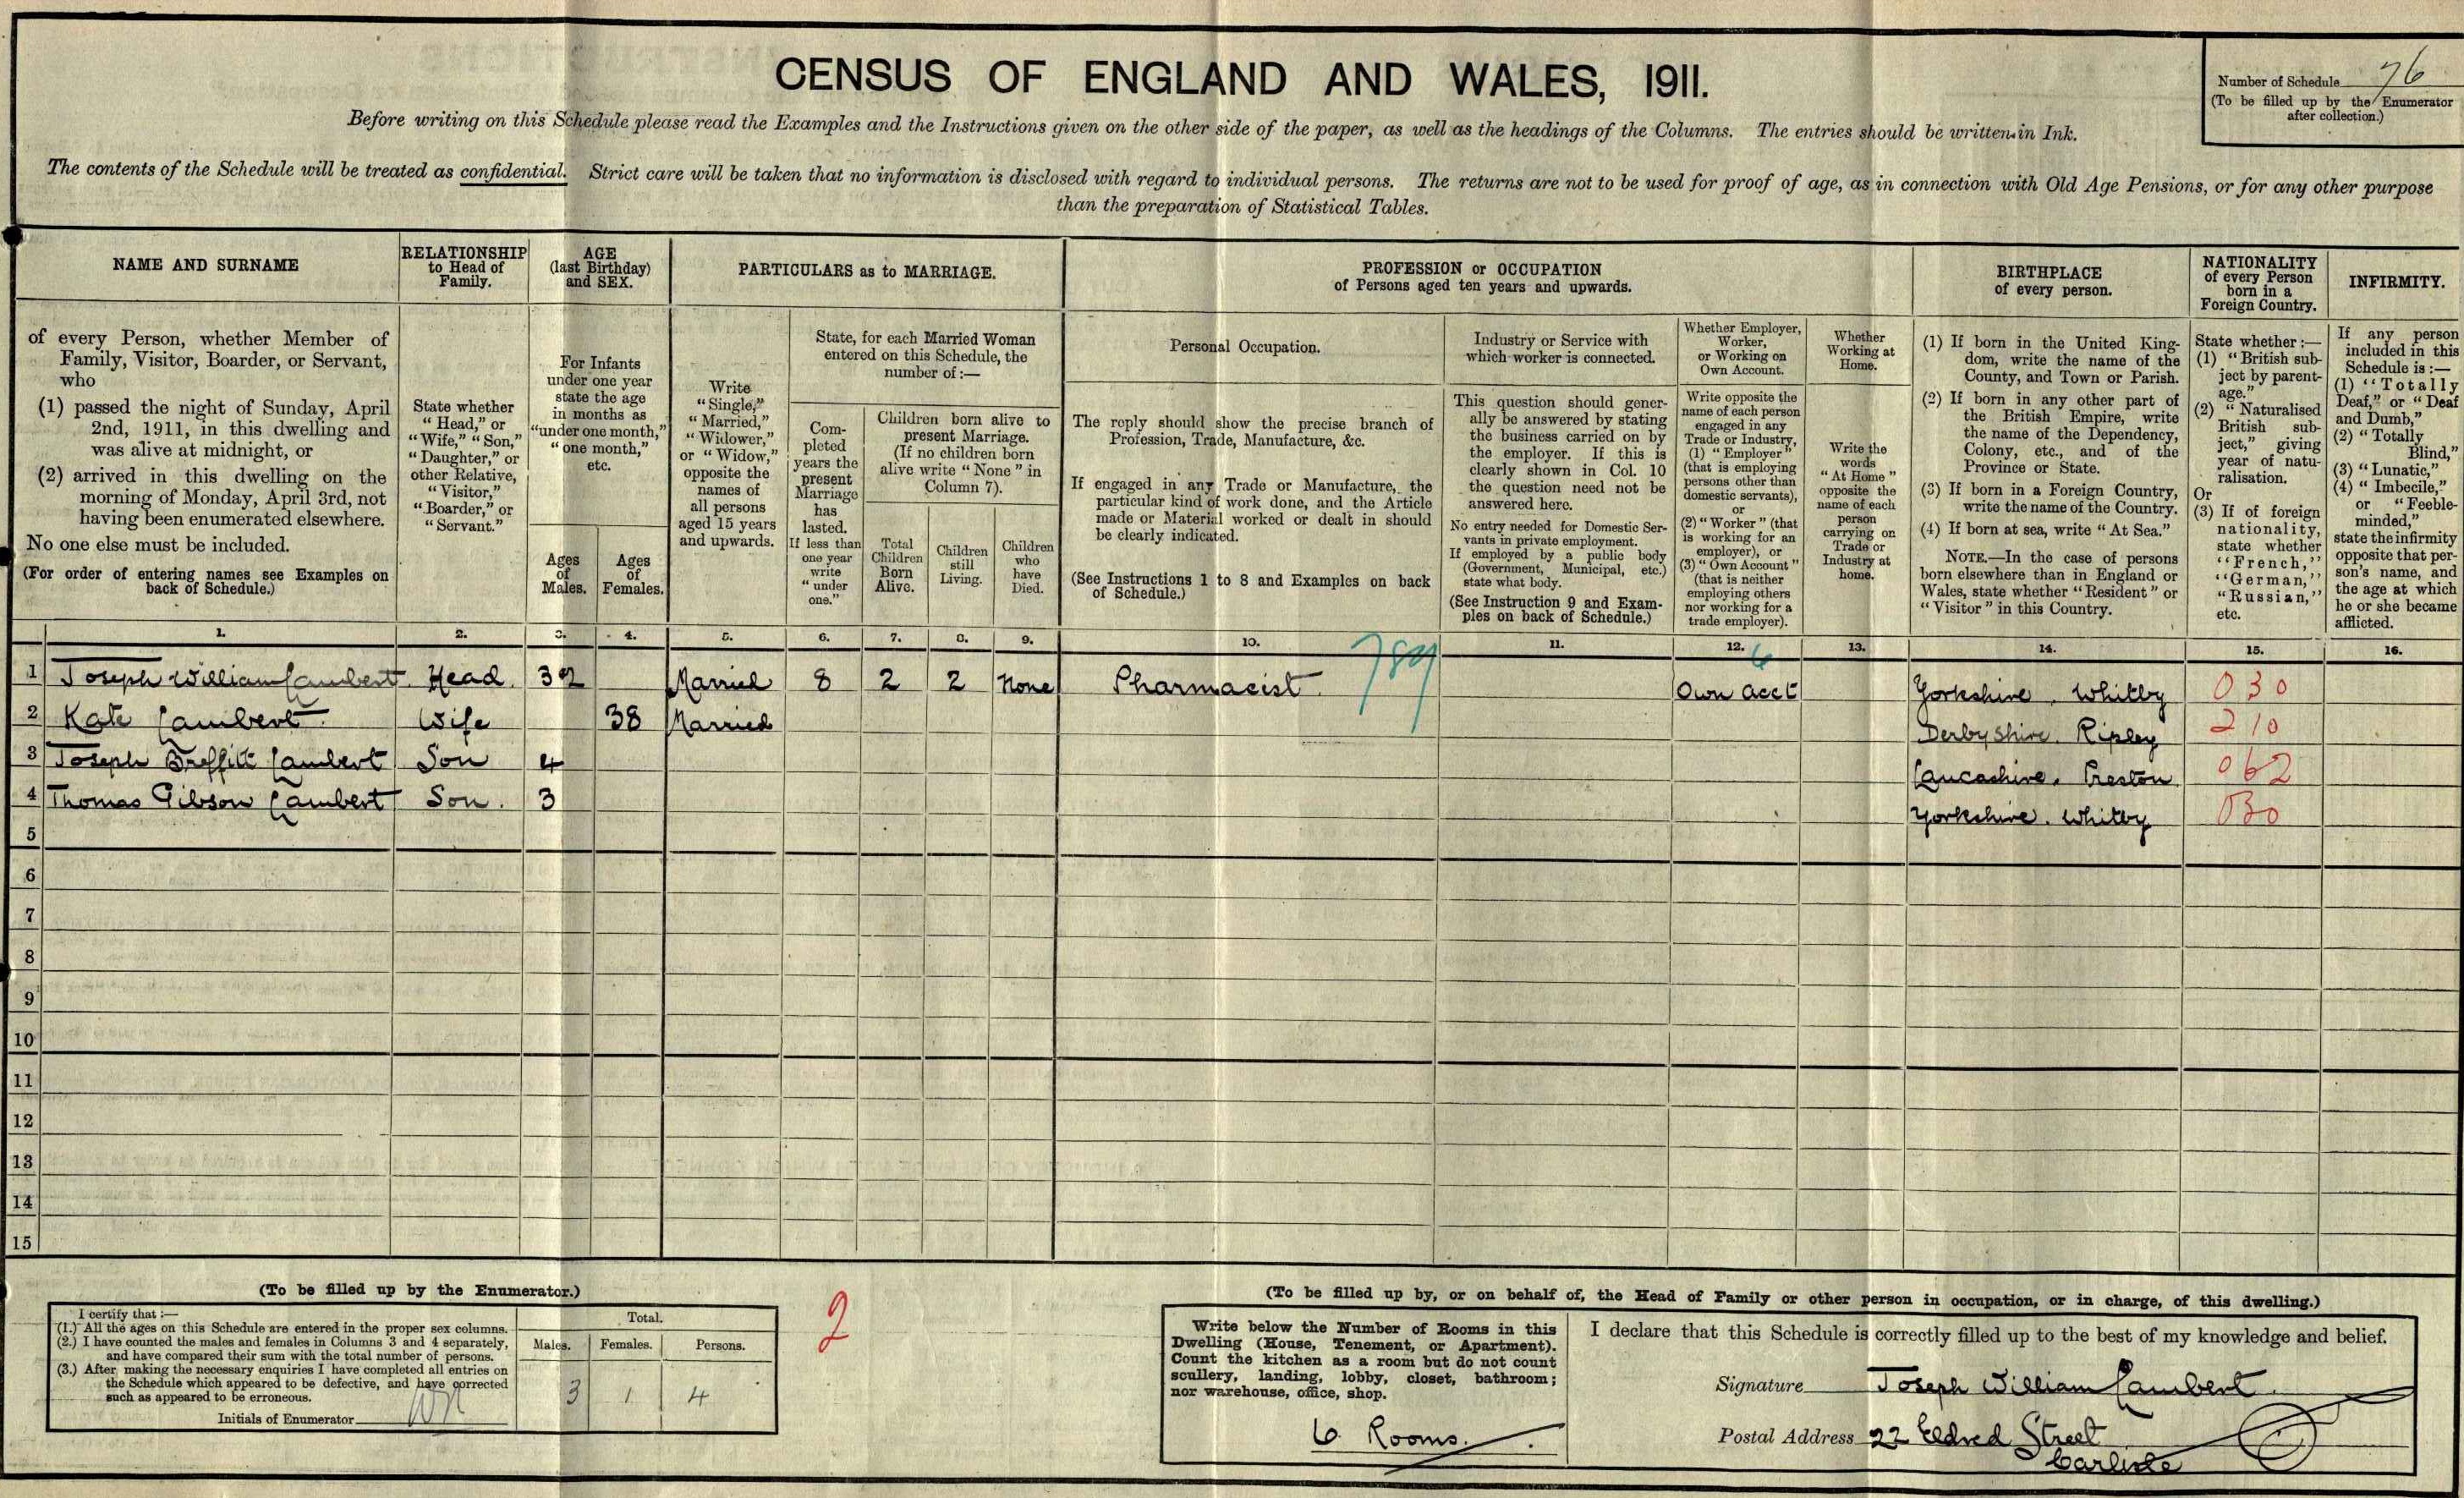 CENSUS OF ENGLAND AND WALES, 1911.
Number of Schedule 76
(To be filled up by the Enumerator
after collection.)
Before writing on this Schedule please read the Examples and the Instructions given on the other side of the paper, as well as the headings of the Columns. The entries should be written in Ink.
The contents of the Schedule will be treated as confidential. Strict care will be taken that no information is disclosed with regard to individual persons. The returns are not to be used for proof of age, as in connection with Old Age Pensions, or for any other purpose
than the preparation of Statistical Tables.
NAME AND SURNAME
of every Person, whether Member of
Family, Visitor, Boarder, or Servant,
who
(1) passed the night of Sunday, April
2nd, 1911, in this dwelling and
was alive at midnight, or
(2) arrived in this dwelling on the
morning of Monday, April 3rd, not
having been enumerated elsewhere.
No one else must be included.
(For order of entering names see Examples on
back of Schedule.)
RELATIONSHIP
to Head of
Family.
State whether
"Head," or
"Wife," "Son,"
"Daughter," or
other Relative,
"Visitor,"
"Boarder," or
"Servant."
AGE
(last Birthday)
and SEX.
For Infants
under one year
state the age
in months as
"under one month,"
"one month,"
etc.
Ages
of
Males.
Ages
of
Females.
PARTICULARS as to MARRIAGE.
Write
"Single,"
"Married,"
"Widower,"
or "Widow,"
opposite the
names of
all persons
aged 15 years
and upwards.
State, for each Married Woman
entered on this Schedule, the
number of :—
Com-
pleted
years the
present
Marriage
has
lasted.
If less than
one year
write
"under
one."
Children born alive to
present Marriage.
(If no children born
alive write "None" in
Column 7).
Total
Children
Born
Alive.
Children
still
Living.
Children
who
have
Died.
PROFESSION or OCCUPATION
of Persons aged ten years and upwards.
Personal Occupation.
The reply should show the precise branch of
Profession, Trade, Manufacture, &c.
If engaged in any Trade or Manufacture, the
particular kind of work done, and the Article
made or Material worked or dealt in should
be clearly indicated.
(See Instructions 1 to 8 and Examples on back
of Schedule.)
Industry or Service with
which worker is connected.
This question should gener-
ally be answered by stating
the business carried on by
the employer. If this is
clearly shown in Col. 10
the question need not be
answered here.
No entry needed for Domestic Ser-
vants in private employment.
If employed by a public body
(Government, Municipal, etc.)
state what body.
(See Instruction 9 and Exam-
ples on back of Schedule.)
Whether Employer,
Worker,
or Working on
Own Account.
Write opposite the
name of each person
engaged in any
Trade or Industry,
(1) "Employer"
(that is employing
persons other than
domestic servants),
or
(2) "Worker" (that
is working for an
employer), or
(3) "Own Account"
(that is neither
employing others
nor working for a
trade employer).
Whether
Working at
Home.
Write the
words
"At Home"
opposite the
name of each
person
carrying on
Trade or
Industry at
home.
BIRTHPLACE
of every person.
(1) If born in the United King-
dom, write the name of the
County, and Town or Parish.
(2) If born in any other part of
the British Empire, write
the name of the Dependency,
Colony, etc., and of the
Province or State.
(3) If born in a Foreign Country,
write the name of the Country.
(4) If born at sea, write "At Sea."
NOTE.—In the case of persons
born elsewhere than in England or
Wales, state whether "Resident" or
"Visitor" in this Country.
NATIONALITY
of every Person
born in a
Foreign Country.
State whether :—
(1) "British sub-
ject by parent-
age."
(2) "Naturalised
British sub-
ject," giving
year of natu-
ralisation.
Or
(3) If of foreign
nationality,
state whether
"French,"
"German,"
"Russian,"
etc.
INFIRMITY.
If any person
included in this
Schedule is :—
(1) "Totally
Deaf," or "Deaf
and Dumb,"
(2) "Totally
Blind,"
(3) "Lunatic,"
(4) "Imbecile,"
or "Feeble-
minded,"
state the infirmity
opposite that per-
son's name, and
the age at which
he or she became
afflicted.
1. 2. 3. 4. 5. 6. 7. 8. 9. 10. 11. 12. 13. 14. 15. 16.
789 6
1 Joseph William Lambert Head 32 Married 8 2 2 None Pharmacist. Own acct Yorkshire, Whitby 030
2 Kate Lambert. Wife 38 Married Derbyshire. Ripley 210
3 Joseph Lambert Son 4 Lancashire. Preston 062
4 Thomas Gibson Lambert Son. 3 Yorkshire. Whitby 030
5
6
7
8
9
10
11
12
13
14
15
(To be filled up by the Enumerator.)
I certify that :—
(1.) All the ages on this Schedule are entered in the proper sex columns.
(2.) I have counted the males and females in Columns 3 and 4 separately,
and have compared their sum with the total number of persons.
(3.) After making the necessary enquiries I have completed all entries on
the Schedule which appeared to be defective, and have corrected
such as appeared to be erroneous.
Initials of Enumerator
Total.
Males. Females. Persons.
3 1 4
2
(To be filled up by, or on behalf of, the Head of Family or other person in occupation, or in charge, of this dwelling.)
Write below the Number of Rooms in this
Dwelling (House, Tenement, or Apartment).
Count the kitchen as a room but do not count
scullery, landing, lobby, closet, bathroom;
nor warehouse, office, shop.
6 Rooms.
I declare that this Schedule is correctly filled up to the best of my knowledge and belief.
Signature Joseph William Lambert.
Postal Address 22 Eldred Street
Carlisle